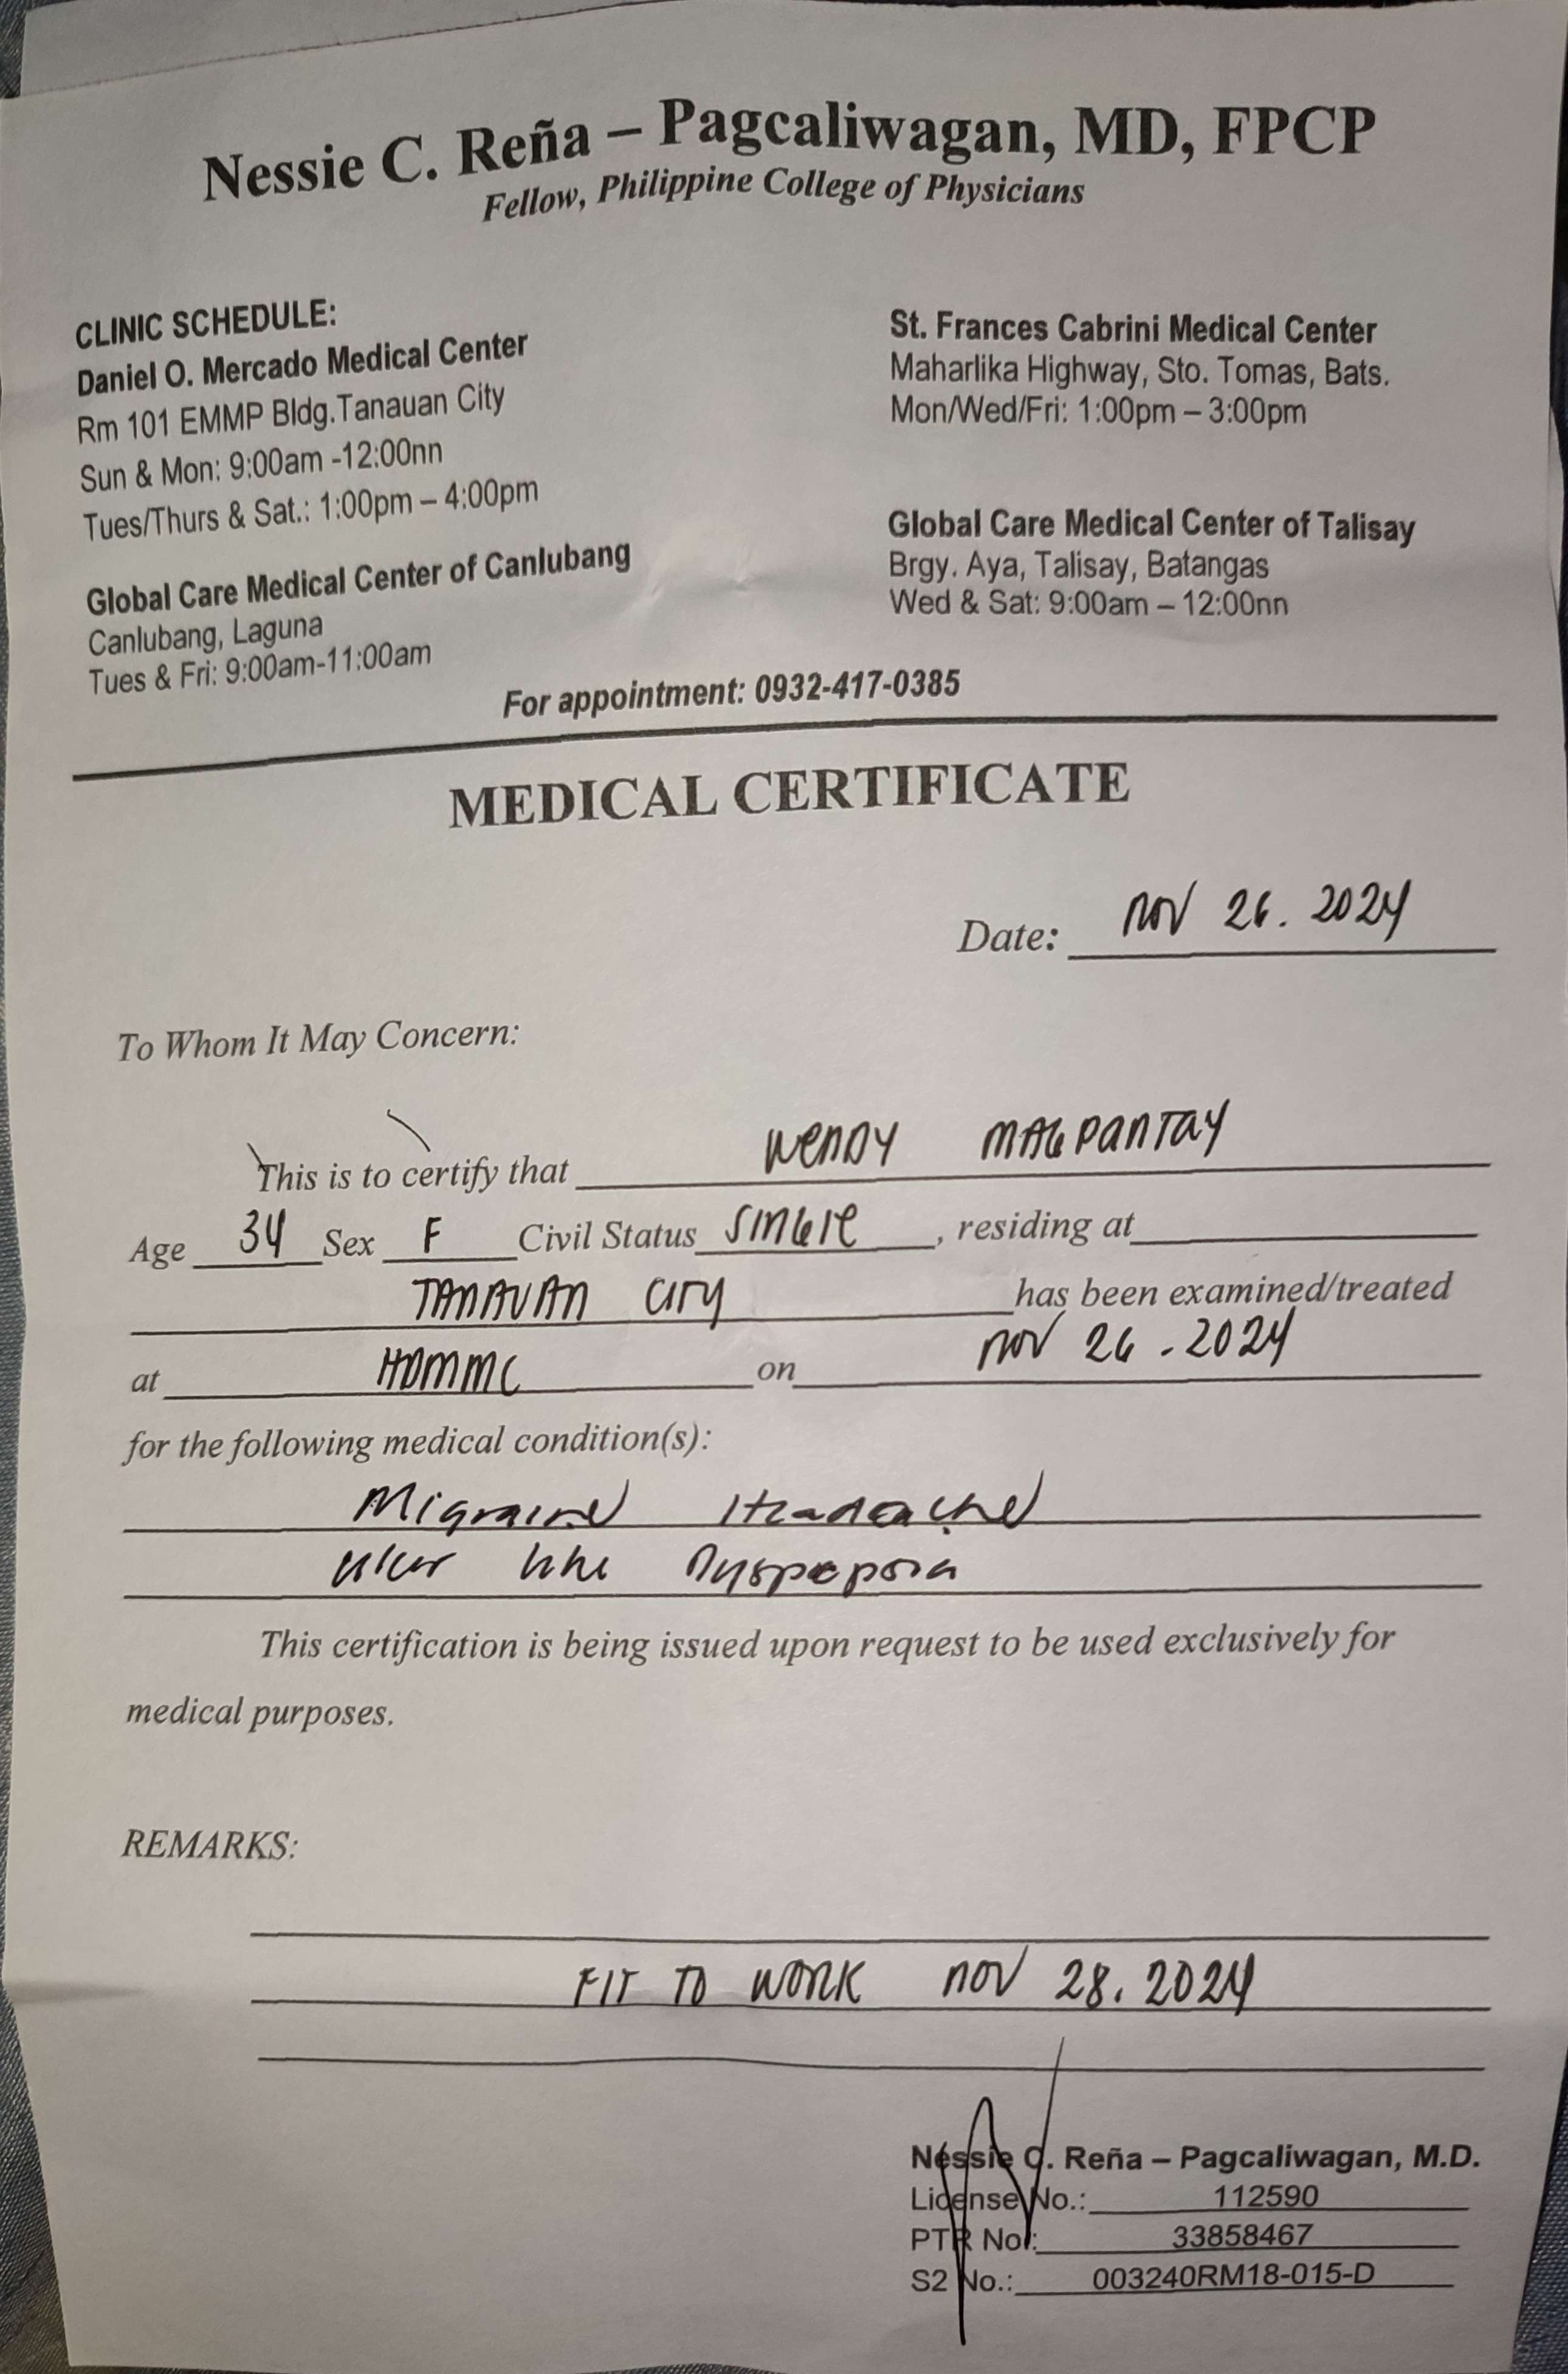 Nessie C. Reña – Pagcaliwagan, MD, FPCP
Fellow, Philippine College of Physicians
CLINIC SCHEDULE:
Daniel O. Mercado Medical Center
Rm 101 EMMP Bldg.Tanauan City
Sun & Mon: 9:00am -12:00nn
Tues/Thurs & Sat.: 1:00pm – 4:00pm
Global Care Medical Center of Canlubang
Canlubang, Laguna
Tues & Fri: 9:00am-11:00am
St. Frances Cabrini Medical Center
Maharlika Highway, Sto. Tomas, Bats.
Mon/Wed/Fri: 1:00pm – 3:00pm
Global Care Medical Center of Talisay
Brgy. Aya, Talisay, Batangas
Wed & Sat: 9:00am – 12:00nn
For appointment: 0932-417-0385
MEDICAL CERTIFICATE
Date: NOV 26. 2024
To Whom It May Concern:
This is to certify that WENDY MAGPANTAY
Age 34 Sex F Civil Status SINGLE, residing at
TANAUAN CITY has been examined/treated
at on NOV 26 . 2024
for the following medical condition(s):
Migraine Headache
Ulcer like Dyspepsia
This certification is being issued upon request to be used exclusively for
medical purposes.
REMARKS:
FIT TO WORK NOV 28. 2024
Nessie C. Reña – Pagcaliwagan, M.D.
License No.: 112590
PTR No.: 33858467
S2 No.: 003240RM18-015-D